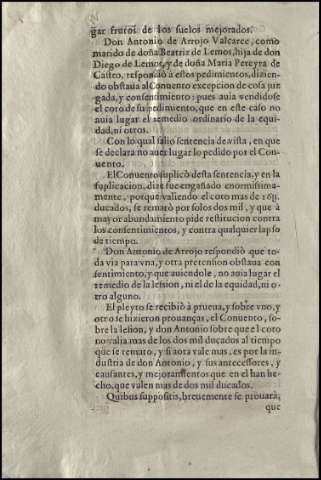 gar frutos de los suelos mejorados.
Don Antonio de Arrojo Valcarce, como
marido de doña Beatriz de Lemos, hija de don
Diego de Lemos, y de doña Maria Pereyra de
Castro, respondiò a estos pedimientos, dizien-
do obstaua al Conuento excepcion de cosa juz
gada, y consentimiento: pues auia vendidose
el coto de su pedimento, que en este caso no
auia lugar el remedio ordinario de la equi-
dad, ni otros.
Con lo qual salio sentencia de vista, en que
se declara no auer lugar lo pedido por el Con-
uento.
El Conuento suplicò desta sentencia, y en la
suplicacion, dize fue engañado enormissima-
mente, porque valiendo el coto mas de
ducados, se rematò por solos dos mil, y que à
mayor abundamiento pide restitucion contra
los consentimientos, y contra qualquier lapso
de tiempo.
Don Antonio de Arrojo respondiò que to-
da via para vna, y otra pretension obstaua con
sentimiento, y que auiendole, no auia lugar el
remedio de la lesion, ni el de la equidad, ni o-
tro alguno.
El pleyto se recibiò à prueua, y sobre vno, y
otro se hizieron prouanças, el Conuento, so-
bre la lesion, y don Antonio sobre que el coto
no valia mas de los dos mil ducados al tiempo
que se remato, y si aora vale mas, es por la in-
dustria de don Antonio, y sus antecessores, y
causantes, y mejoramientos que en el han he-
cho, que valen mas de dos mil ducados.
Quibus suppositis, breuemente se prouarà,
que